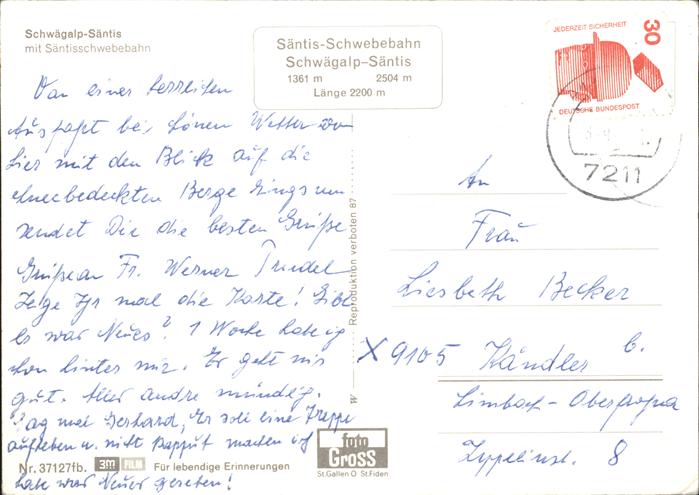 Schwägalp-Säntis
mit Säntisschwebebahn
Säntis-Schwebebahn
Schwägalp-Säntis
1361 m 2504 m
Länge 2200 m
JEDERZEIT SICHERHEIT
30
DEUTSCHE BUNDESPOST
7211
Von einer herrlichen
Ausfahrt bei schönen Wetter von
hier mit den Blick auf die
schneebedeckten Berge rings um
sendet Dir die besten Grüße
Grüße an Fr. Werner
Zeige Ihr mal die Karte! Gibt
es was Neues? 1 Woche habe ich
schon hinter mir. Es geht mir
gut. Alles andre mündlig.
Sag mal Gerhard, Er soll eine Treppe
aufheben u. nicht kapputt machen ich
habe was Neues gesehen!
An
Frau
Liesbeth Becker
X 9105 Kändler b.
Limbach-Oberfrohna
Zeppelinst. 8
W Reproduktion verboten 87
foto
GROSS
St.Gallen O St.Fiden
Nr. 37127fb. 3M FILM Für lebendige Erinnerungen